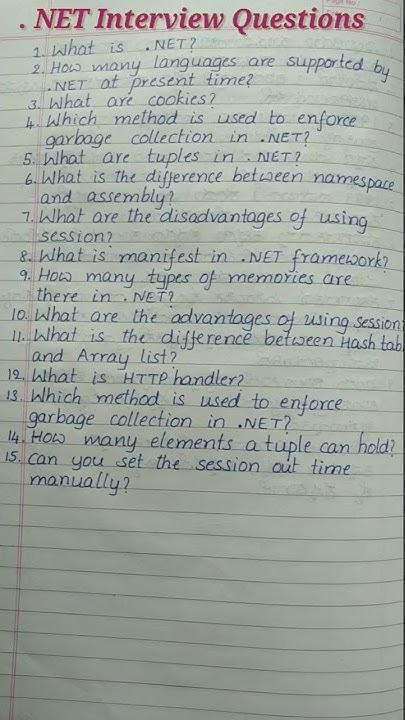 . NET Interview Questions
1. What is .NET?
2. How many languages are supported by
.NET at present time?
3. What are cookies?
4. Which method is used to enforce
garbage collection in .NET?
5. What are tuples in .NET?
6. What is the difference between namespace
and assembly?
7. What are the disadvantages of using
session?
8. What is manifest in .NET framework?
9. How many types of memories are
there in .NET?
10. What are the advantages of using session?
11. What is the difference between Hash tab
and Array list?
12. What is HTTP handler?
13. Which method is used to enforce
garbage collection in .NET?
14. How many elements a tuple can hold?
15. Can you set the session out time
manually?